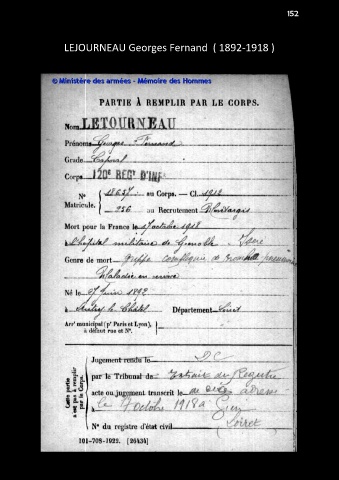 152
LEJOURNEAU Georges Fernand ( 1892-1918 )
© Ministère des armées - Mémoire des Hommes
PARTIE À REMPLIR PAR LE CORPS.
Nom LETOURNEAU
Prénoms Georges Fernand
Grade Caporal
Corps 120e REGt D'INFie
N° 18637 au Corps. — Cl. 1912
Matricule. 256 au Recrutement Montargis
Mort pour la France le 17 octobre 1918
à l'hôpital militaire de Grenoble Isère
Genre de mort Grippe compliquée de
Maladie en
Né le 1892
à Autry le Châtel Département Loiret
Arrt municipal (pr Paris et Lyon), à défaut rue et N°.
Cette partie n'est pas à remplir par le Corps.
Jugement rendu le DC
par le Tribunal de Extrait du Registre
acte ou jugement transcrit le de décès adressé
à le octobre 1918 à Gien
N° du registre d'état civil Loiret
101-708-1922. [26434]